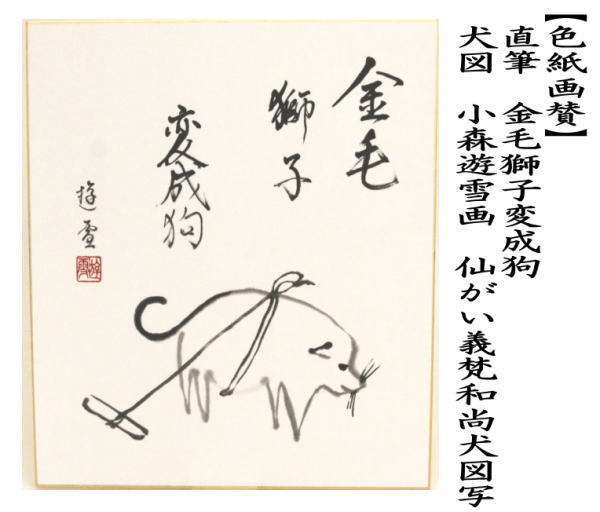 【色紙画賛】
直筆　金毛獅子変成狗
犬図　小森遊雪画　仙がい義梵和尚犬図写
金毛
獅子
変成狗
遊雪